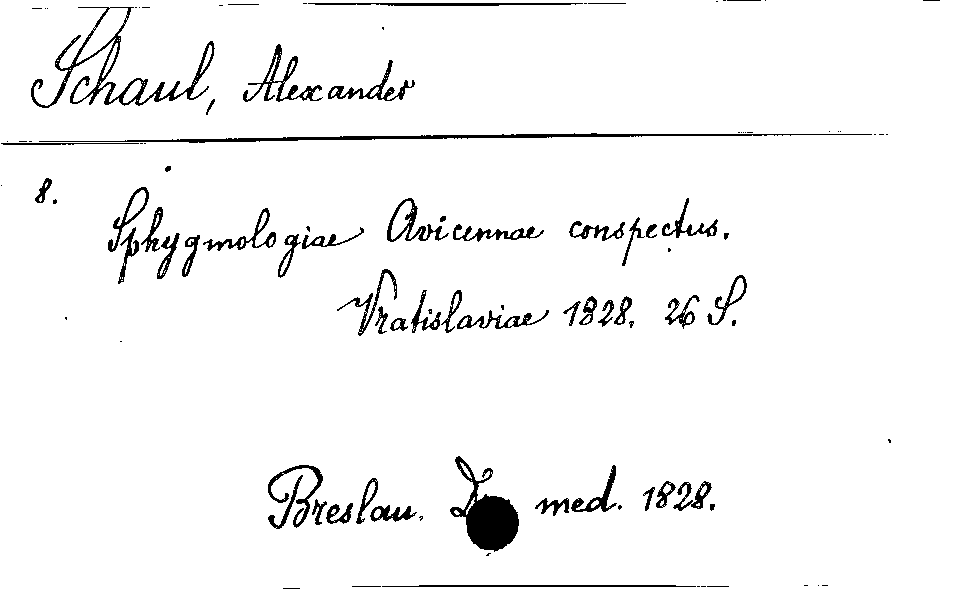 Schaul, Alexander
8.
Sphygmologiae Avicennae conspectus.
Vratislaviae 1828. 26 S.
Breslau. med. 1828.